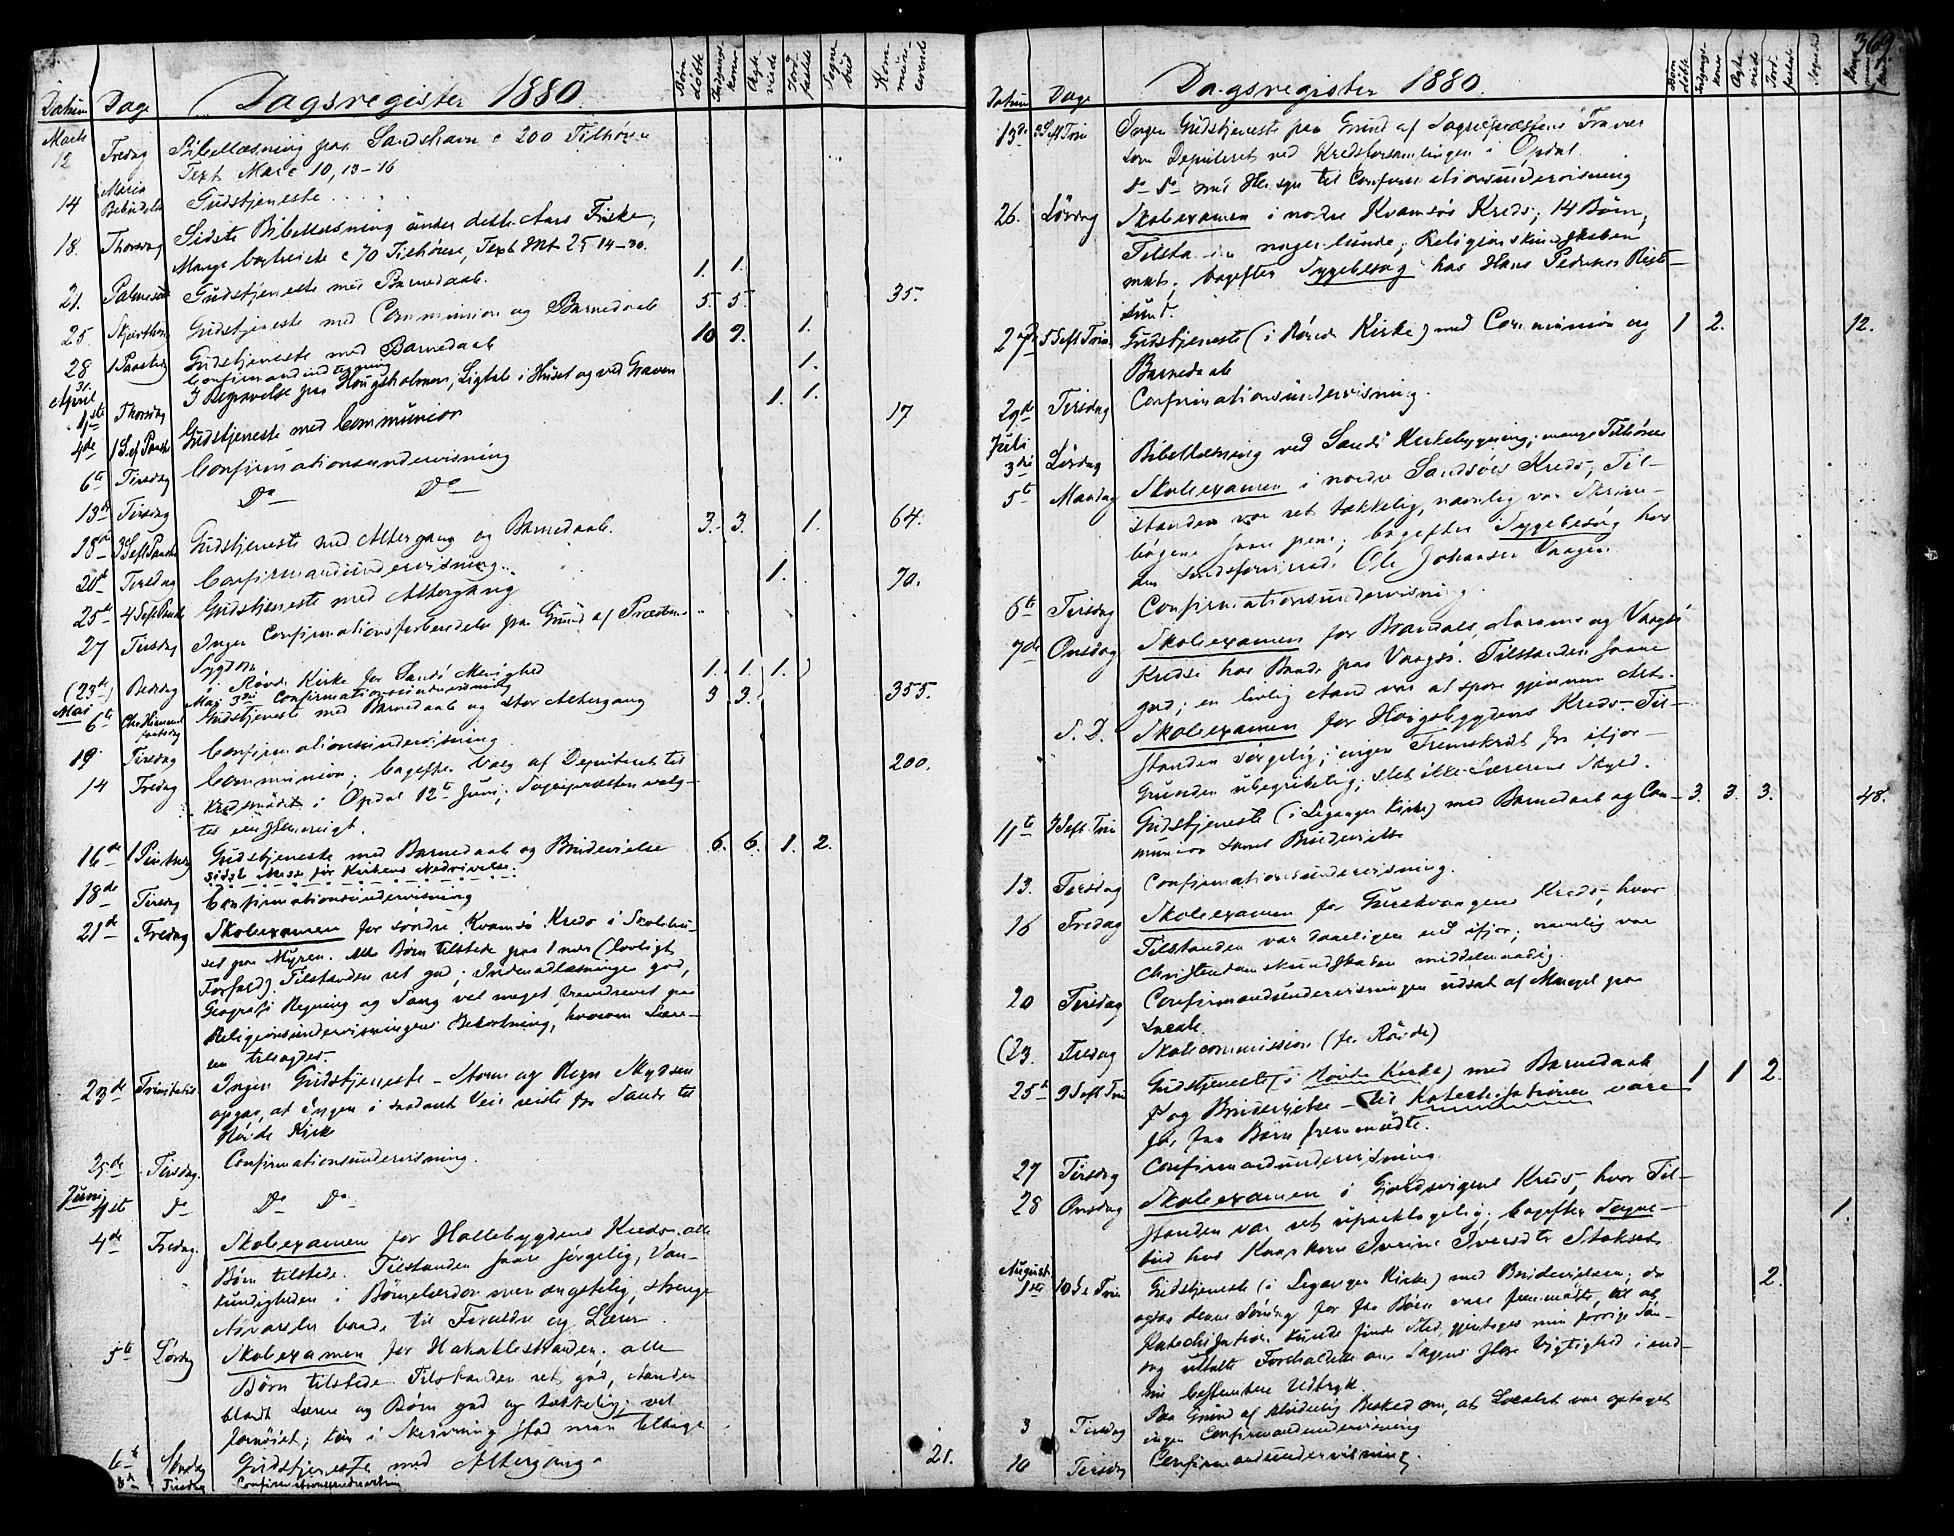 Datum Dage Dagsregister 1880. Børn døbte Indgangs koner Ægte viede Jord festede Sogne bud Kom muni cerende
Marts
12 Fredag Bibellæsning paa Sandshavn c 200 Tilhørere
Text Marc 10, 13-16
14 Maria Bebudelse Gudstjeneste
18. Thorsdag Sidste Bibellæsning under dette Aars Fiske,
Mange bortreiste c 70 Tilhørere, Text Mt 25 14-30.
21. Palmesønd Gudstjeneste med Barnedaab. 1. 1.
25. Skjærthorsd Gudstjeneste med Communion og Barnedaab 5. 5. 35.
28 1 Paaskedag Gudstjeneste med Barnedaab 10 9. 1.
31. Confirmandindtegning
April 1ste Thorsdag I Begravelse paa Hougsholmen, Ligtale i Huset og ved Graven 1.
4de 1 S. ef Paaske Gudstjeneste med Communion 1. 1. 17
6te Tirsdag Confirmationsundervisning
13de Tirsdag Do Do
18de 3 S eft Paaske Gudstjeneste med Altergang og Barnedaab. 3. 3. 1. 64.
20de Tirsdag Confirmandundervisning.
25de 4 S eft Paaske Gudstjeneste med Altergang 1. 70.
27 Tirsdag Ingen Confirmationsforberedelse paa Grund af Præstens
Sygdom
(23de) Bededag i Røvde Kirke for Sands Menighed 1. 1. 1.
Mai Maj 3die Confirmationsundervisning
6te Chr. Himmelfartsdag Gudstjeneste med Barnedaab og stor Altergang 3 3. 355.
19 Tirsdag Confirmationsundervisning.
14 Fredag Communion; bagefter Valg af Deputeret til 200.
Kredsmødet i Opdal 12te Juni; Sognepræsten valg-
tes eenstemmigt.
16de 1 Pintsedag Gudstjeneste med Barnedaab og Brudevielse 6. 6. 1. 2.
sidste Messe før Kirkens Nedrivelse.
18de Tirsdag Confirmationsundervisning
21de Fredag Skoleexamen for søndre Kvamsø Kreds i Skolehu-
set paa Myren. Alle Børn tilstede paa 1 nær (lovligt
Forfald). Tilstanden ret god; Indenadlæsningen god,
Geografi Regning og Sang vel meget fremdrevet paa
Religionsundervisningens Bekostning, hvorom Lære-
ren tilsagdes.
23de Trinitatis. Ingen Gudstjeneste - Storm og Regn
opgav, at Ingen i saadant Veir reiste fra Sande til
Røvde Kirke
25de Tirsdag. Confirmationsundervisning.
Juni
1ste do Do Do
4de Fredag. Skoleexamen for Hallebygdens Kreds. alle
Børn tilstede. Tilstanden saare sørgelig, Van-
kundigheden i Børnelærdommen ængstelig, strenge
Advarsler baade til Forældre og Lærer.
5te Lørdag Skoleexamen for Hakallestranden. alle
Børn tilstede. Tilstanden ret god, Aanden
blandt Lærer og Børn god og tækkelig; vel
fornøiet; kun i Skrivning stod man tilbage
6te Søndag Gudstjeneste med Altergang. 21.
8de Tirsdag Confirmationsundervisning
369
Datum Dage Dagsregister 1880. Børn døbte Indgangs koner Ægte viede Jord festede Sognebud
13de 3 S eft Trin Ingen Gudstjeneste paa Grund af Sognepræstens Fravær
som Deputeret ved Kredsforsamlingen i Opdal.
Do Do med Hensyn til Confirmationsundervisning
26. Lørdag Skoleexamen i nordre Kvamsøs Kreds; 14 Børn;
Tilstanden nogenlunde; Religionskundskaben
mat; bagefter Sygebesøg hos Hans Pedersen Rist-
sund.
27de 5 S eft Trin Gudstjeneste (i Røvde Kirke) med Communion og 1 2. 12.
Barnedaab
29de Tirsdag Confirmationsundervisning.
Juli
3die Lørdag Bibellæsning ved Sands Kirkebygning; mange Tilhørere
5te Mandag Skoleexamen i nordre Sandsøes Kreds, Til-
standen var ret tækkelig, navnlig var Skrive-
bøgene saare pene; bagefter Sygebesøg hos
den sindsforvirrede Ole Johansen Vaagen.
6te Tirsdag Confirmationsundervisning.
7de Onsdag Skoleexamen for Brandals, Aarams og Vaagsø
Kredse hos Baade paa Vaagsø. Tilstanden saare
god; en livlig Aand var at spore gjennem Alt.
S. D. Skoleexamen for Hougsbygdens Kreds - Til-
standen sørgelig; ingen Fremskridt fra ifjor -
Grunden ubegribelig; slet ikke Lærerens Skyld.
11te 7 S eft Trin Gudstjeneste (i Leganger Kirke) med Barnedaab og Com- 3. 3. 3. 48.
munion samt Brudevielse
13. Tirsdag Confirmationsundervisning.
16 Fredag Skoleexamen for Gurskvaagens Kreds, hvor
Tilstanden var daarligere end ifjor; navnlig var
Christendomskundskaben middelmaadig.
20 Tirsdag Confirmandundervisningen udsat af Mangel paa
Locale.
(23. Fredag Skolecommission (for Røvde)
25de 9 S eft Trin Gudstjeneste (i Røvde Kirke) med Barnedaab 1 1 2.
og Brudevielse - til Katechisationen vare
for faa Børn fremmødte.
27 Tirsdag Confirmandundervisning.
28 Onsdag Skoleexamen i Gjerdsvigens Kreds, hvor Til-
standen var ret upaaklagelig; bagefter Sogne- 1.
bud hos Kaarkone Iverine Iversdtr Stokset.
August
1ste 10 S e Trin Gudstjeneste (i Leganger Kirke) med Brudevielser; da 2.
ogsaa denne Søndag for faa Børn vare fremmødte til at
Katechisation kunde finde Sted, gjentoges min forrige Søn-
dag udtalte Foreholdelse om Sagens store Vigtighed i end-
nu bestemtere Udtryk
3 Tirsdag Paa Grund af Besked om, at Localet var optaget
ingen Confirmandundervisning
10 Tirsdag Confirmandundervisning.